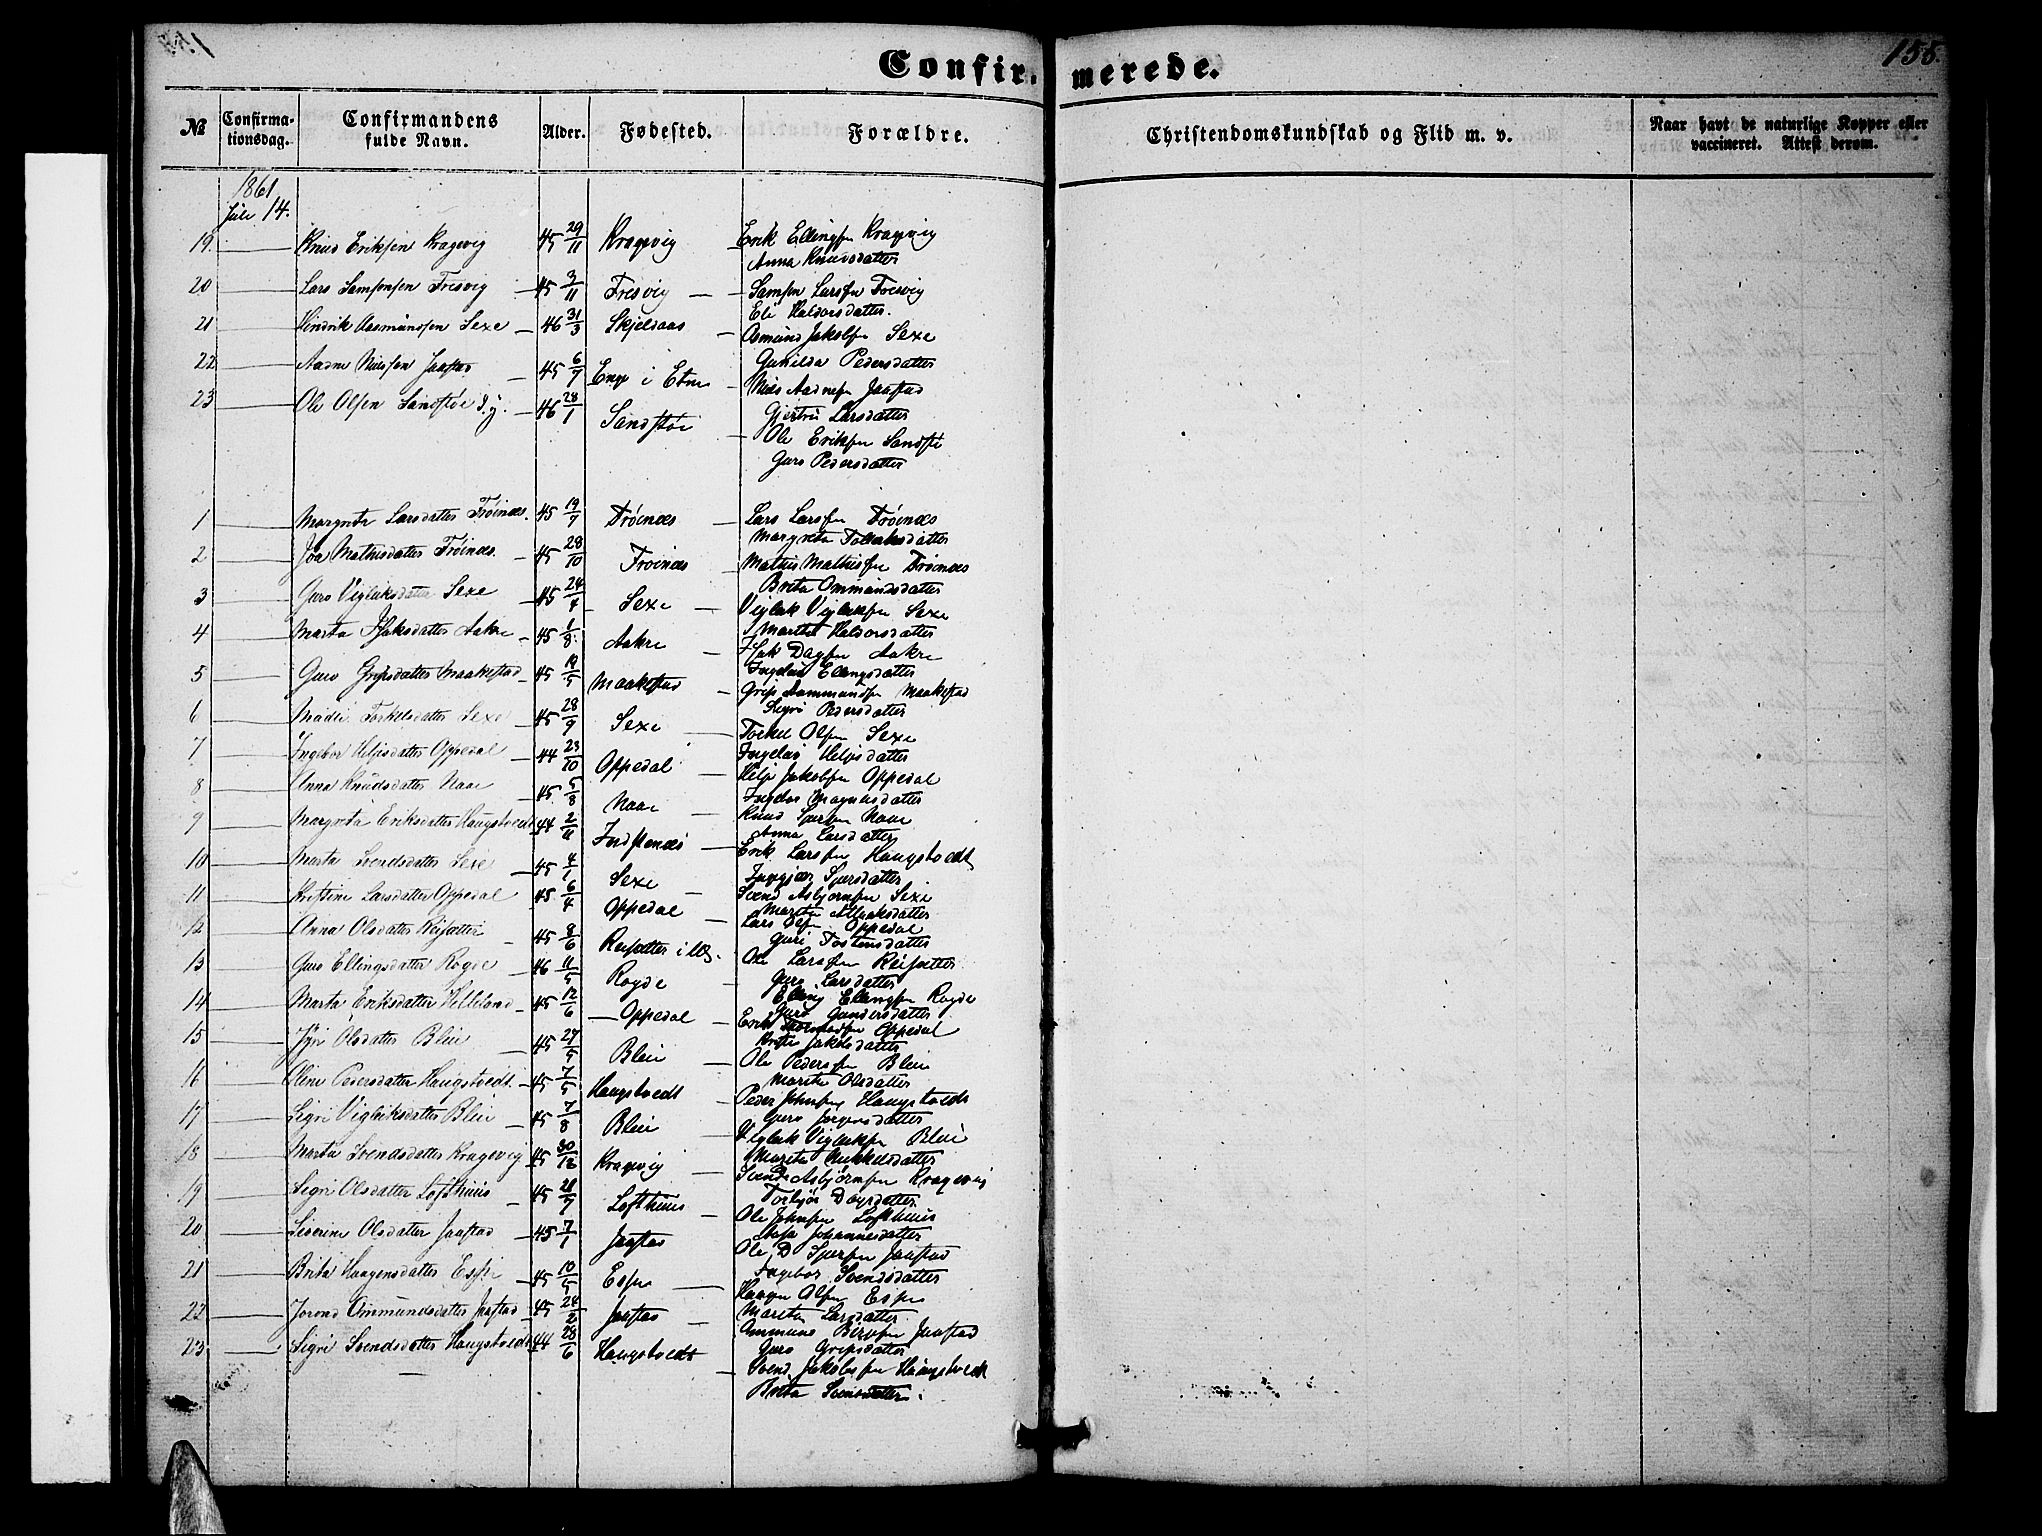 Confirmerede.
155.
№ Confirmationsdag. Confirmandens fulde Navn. Alder. Fødested. Forældre. Christendomskundskab og Flid m. v. Naar havt de naturlige Kopper eller vaccineret. Attest derom.
1861
Juli 14.
19. Knud Eriksen Kragevig 45 29/11 Kragevig Erik Ellingsen Kragevig
Anna Knudsdatter
20 Lars Samsonsen Fresvig 45 3/11 Fresvig Samson Larssen Fresvig
Eli Haldorsdatter.
21 Hendrik Aasmundsen Sexe 46 31/3 Skjeldaas Asmund Jakobsen Sexe
Gunilda Pedersdatter
22 Aadne Nilssen Jaastad 45 6/7 Enge i Etne Nils Aadnesen Jaastad
Gjertru Larsdatter
23 Ole Olsen Sandstøe d.y. 46 28/1 Sandstøe Ole Eriksen Sandstø
Guro Pedersdatter
1 Margreta Larsdatter Trøinæs. 45 19/7 Trøinæs Lars Larssen Trøinæs
Margreta datter
2 Mathisdatter Trøinæs. 45 28/10 Trøinæs Mathis Mathissen Trøinæs
Brita Ommundsdatter
3 Guro Viglaiksdatter Sexe 45 24/4 Sexe Viglak Viglaksen Sexe
Marita Haldorsdatter
4 Marta Isaksdatter Aakre 45 1/8 Aakre Isak Dagsen Aakre
Ellingsdatter
5 Guro Gripsdatter Maakestad 45 19/5 Maakestad Grip Aammundsen Maakestad
Sigri Pedersdatter
6 Torkelsdatter Sexe 45 28/9 Sexe Torkel Olsen Sexe
Heljesdatter
7 Ingebor Heljesdatter Oppedal 44 23/10 Oppedal Helje Jakobsen Oppedal
Ingebor Magnusdatter
8 Anna Knudsdatter Naae 45 5/8 Naae Knud Sjursen Naae
Anna Larsdatter
9 Margreta Eriksdatter Haugstvedt 44 2/11 Indstenæs Erik Larssen Haugstvedt
Sjursdatter
10 Marta Svendsdatter Sexe 45 4/1 Sexe Svend Asbjørnsen Sexe
Marita datter
11 Kristine Larsdatter Oppedal 45 6/4 Oppedal Lars Olsen Oppedal
Guri Tostensdatter
12 Anna Olsdatter Reisæter 45 8/6 Reisæter i Ul. Ole Larssen Reisæter
Guro Larsdatter
13 Guro Ellingsdatter Rogde 46 11/5 Rogde Elling Ellingsen Rogde
Guro Gundersdatter
14 Marta Eriksdatter Helleland 45 12/6 Oppedal Erik Oppedal
Jakobsdatter
15 Olsdatter Bleie 45 27/5 Bleie Ole Pedersen Bleie
Marita Olsdatter
16 Oline Pedersdatter Haugstvedt. 45 7/5 Haugstvedt Peder Johnsen Haugstvedt
Guro Jorgensdatter
17 Sigri Viglaiksdatter Bleie 45 7/8 Bleie Viglak Viglaksen Bleie
Marita Mikkelsdatter
18 Marta Svendsdatter Kragevig 45 30/12 Kragevig Svend Asbjørnsen Kragevig
Torbjør Dagsdatter
19 Sigri Olsdatter Lofthuus 45 21/7 Lofthuus Ole Johnsen Lofthuus
Johannesdatter
20 Severine Olsdatter Jaastad 45 7/1 Jaastad Ole D. Sjursen Jaastad
Ingebor Svendsdatter
21 Brita Haagensdatter Espe 45 10/5 Espe Haagen Olsen Espe
Marita Larsdatter
22 Jorond Ommundsdatter Jaastad 45 24/2 Jaastad Ommund Jaastad
Guro Gripsdatter
23 Sigri Svendsdatter Haugstvedt 44 28/6 Haugstvedt Svend Jakobssen Haugstvedt
Brita Svendsdatter.